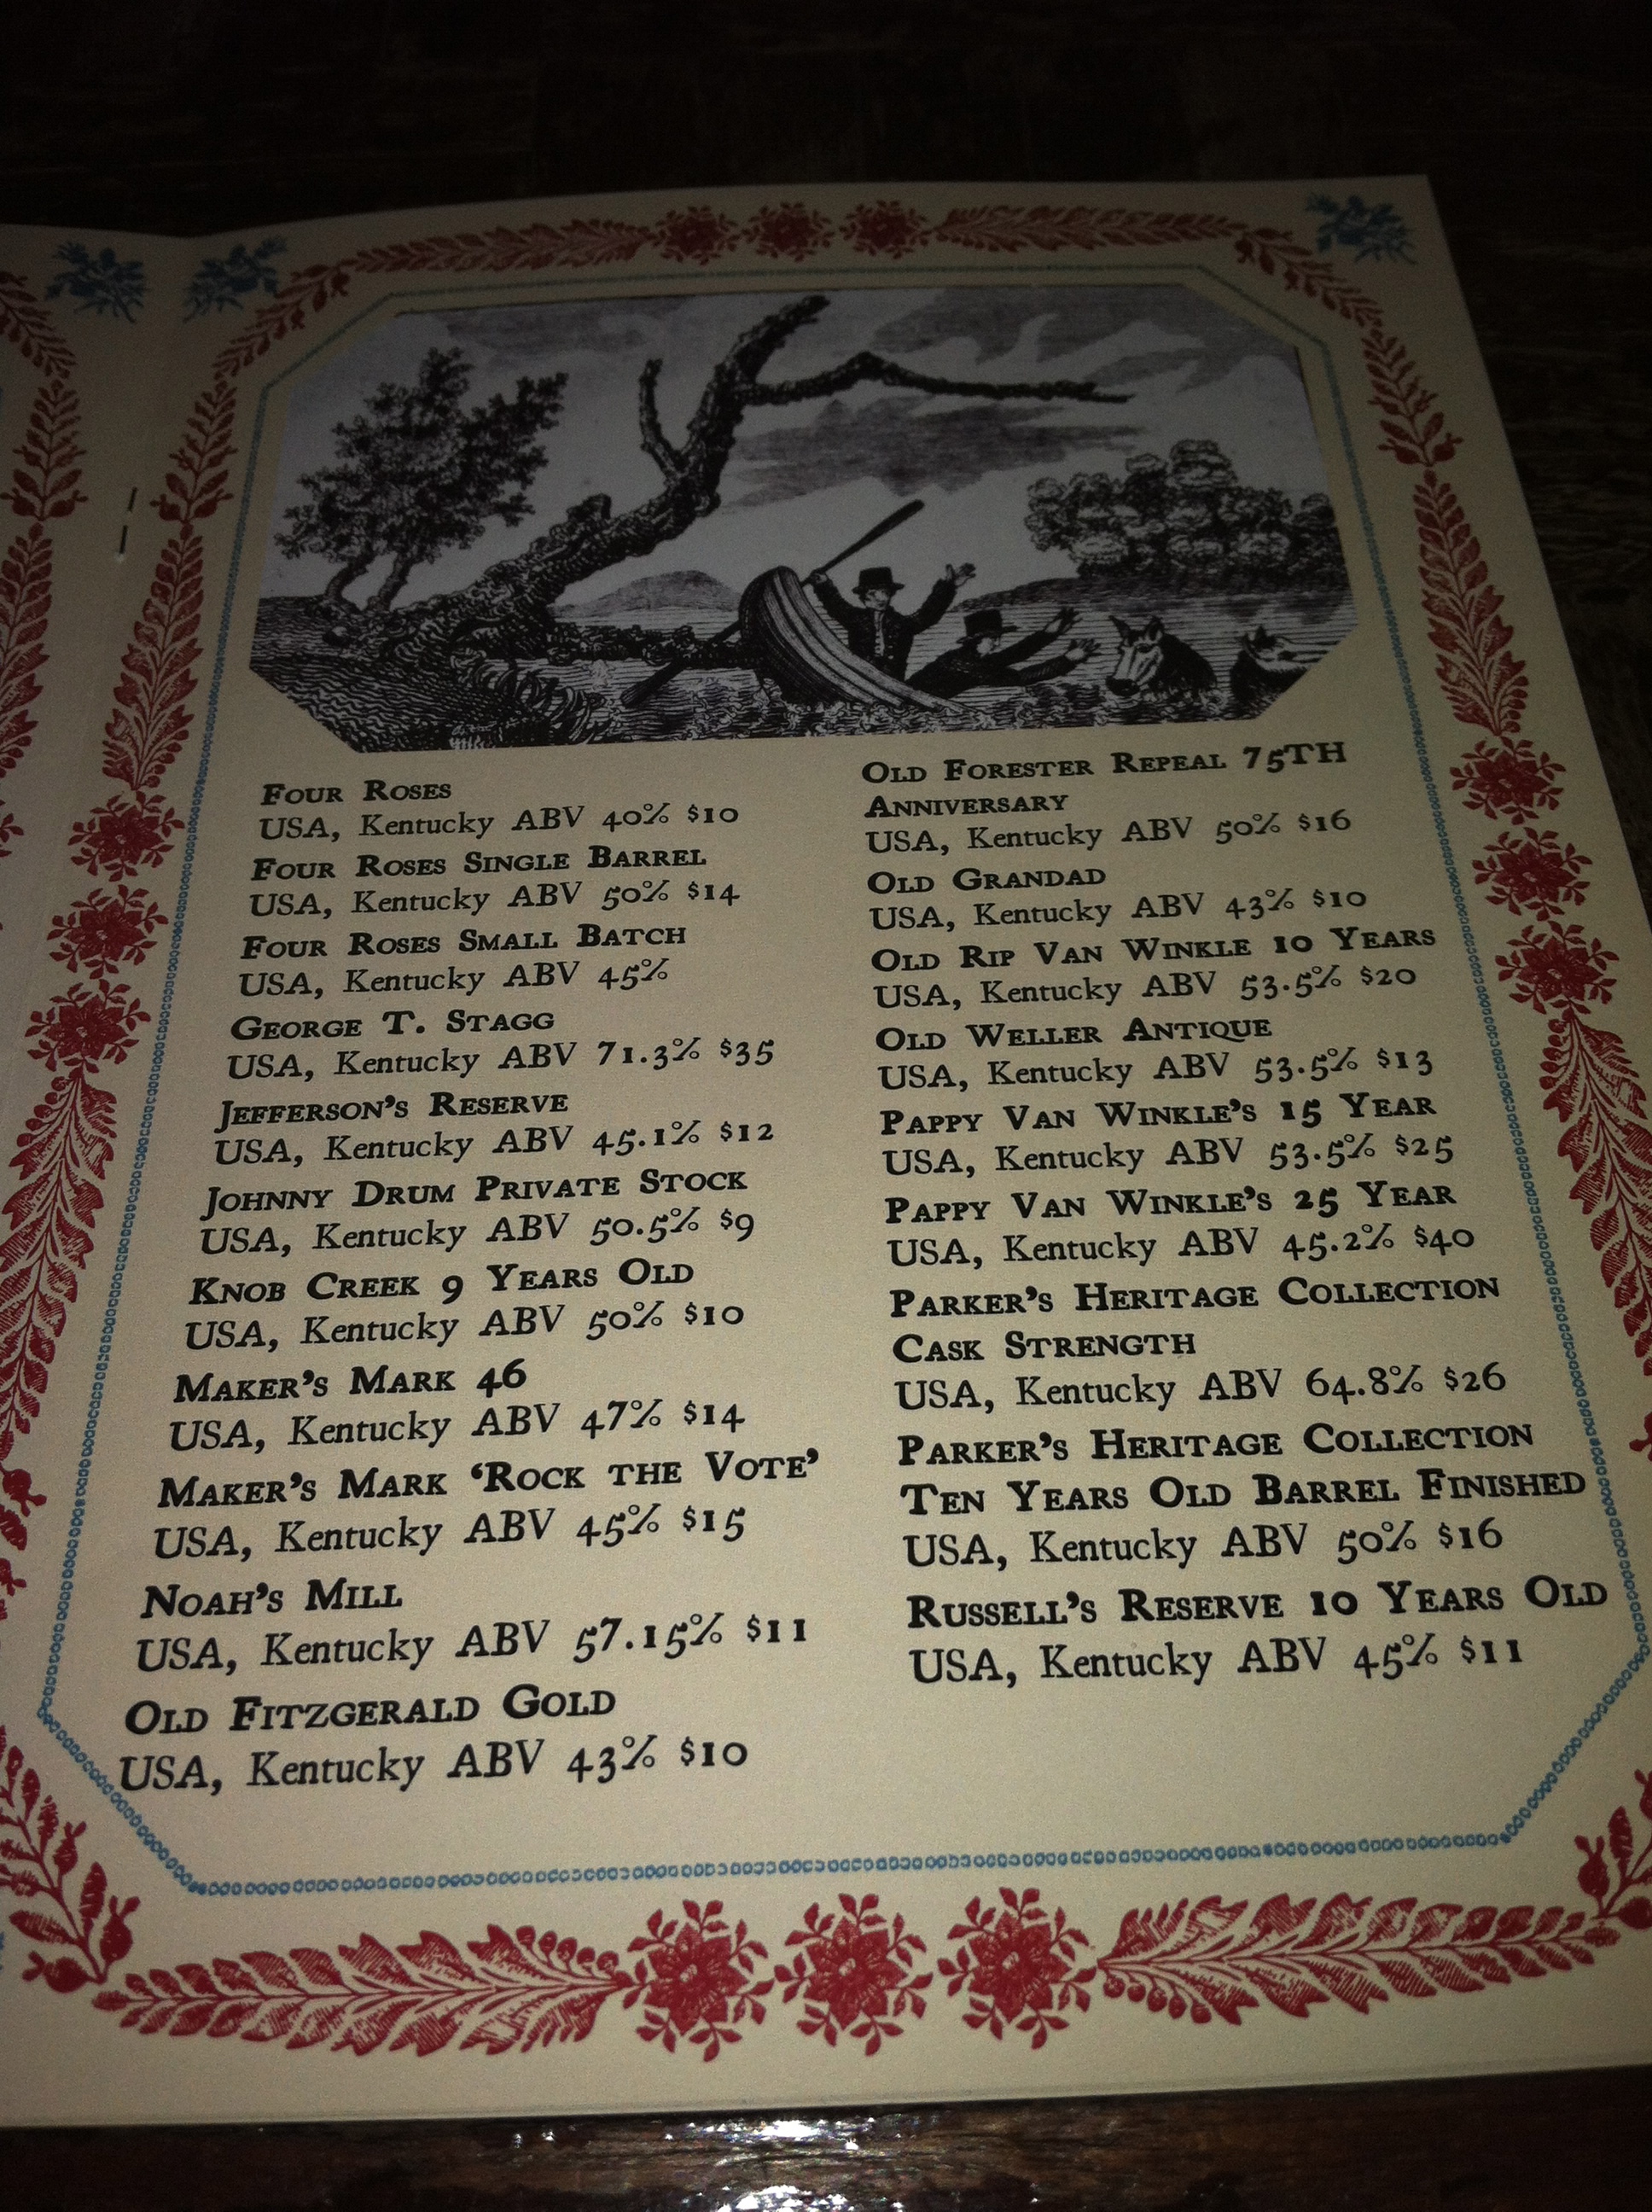 Four Roses
USA, Kentucky ABV 40% $10
Four Roses Single Barrel
USA, Kentucky ABV 50% $14
Four Roses Small Batch
USA, Kentucky ABV 45%
George T. Stagg
USA, Kentucky ABV 71.3% $35
Jefferson's Reserve
USA, Kentucky ABV 45.1% $12
Johnny Drum Private Stock
USA, Kentucky ABV 50.5% $9
Knob Creek 9 Years Old
USA, Kentucky ABV 50% $10
Maker's Mark 46
USA, Kentucky ABV 47% $14
Maker's Mark ‘Rock the Vote’
USA, Kentucky ABV 45% $15
Noah's Mill
USA, Kentucky ABV 57.15% $11
Old Fitzgerald Gold
USA, Kentucky ABV 43% $10
Old Forester Repeal 75th
Anniversary
USA, Kentucky ABV 50% $16
Old Grandad
USA, Kentucky ABV 43% $10
Old Rip Van Winkle 10 Years
USA, Kentucky ABV 53.5% $20
Old Weller Antique
USA, Kentucky ABV 53.5% $13
Pappy Van Winkle's 15 Year
USA, Kentucky ABV 53.5% $25
Pappy Van Winkle's 25 Year
USA, Kentucky ABV 45.2% $40
Parker's Heritage Collection
Cask Strength
USA, Kentucky ABV 64.8% $26
Parker's Heritage Collection
Ten Years Old Barrel Finished
USA, Kentucky ABV 50% $16
Russell's Reserve 10 Years Old
USA, Kentucky ABV 45% $11